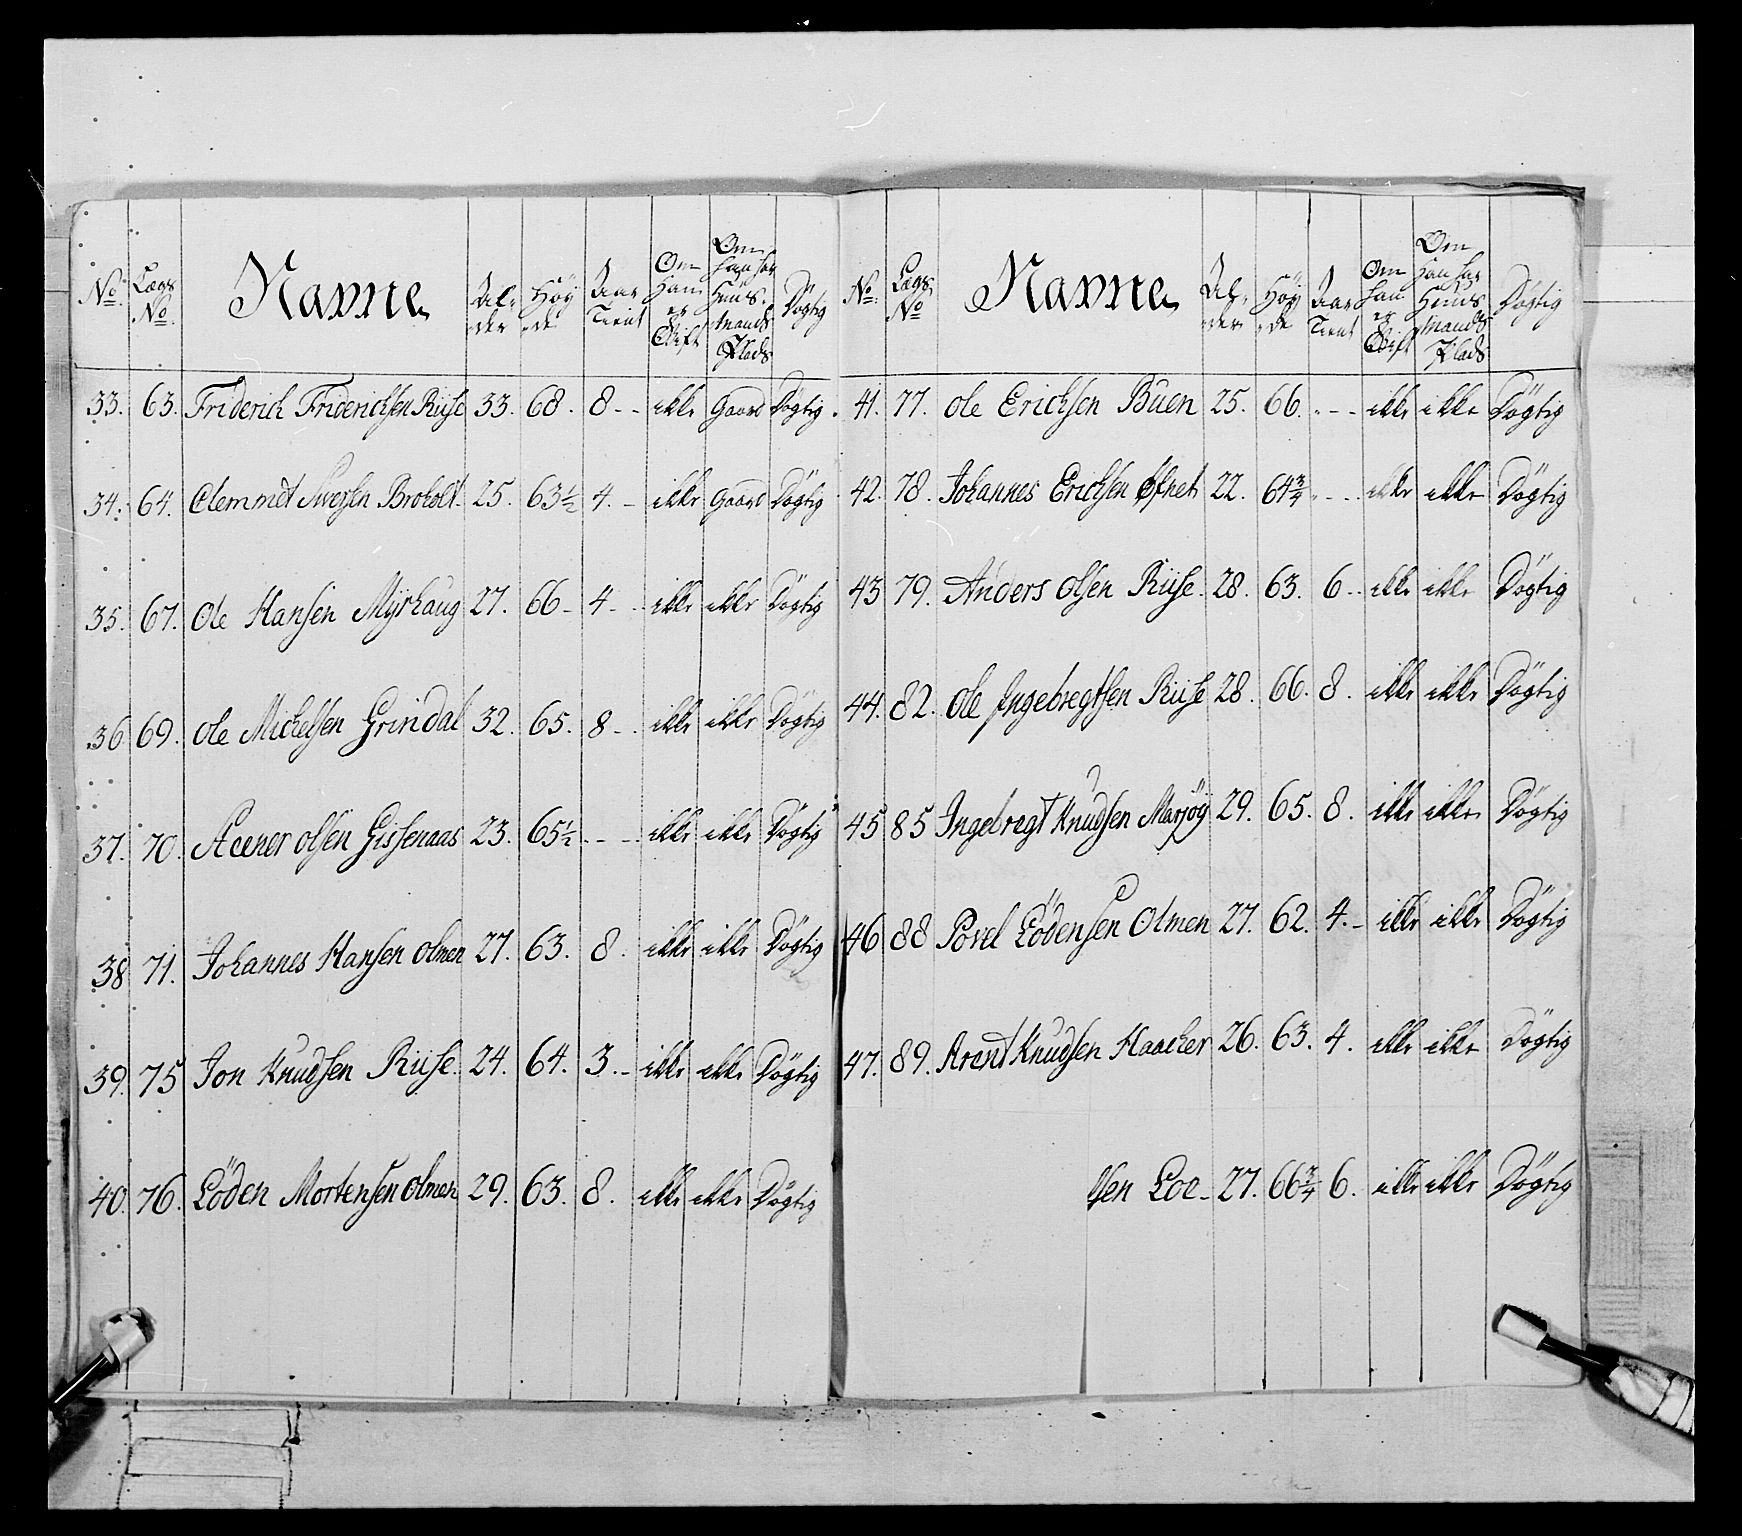 No. Lægs No. Navne Al- der Höy de Aar Tient Om han er Gift Om han har Huus- mands Plads Dögtig
33. 63. Friderich Friderichsen Riise 33. 68. 8 - - ikke Gaard Dögtig.
34. 64. Clemmet Iversen Broholt 25. 63½ 4. - ikke Gaard Dögtig
35. 67. Ole Hansen Myrhaug 27. 66 - 4 - - ikke ikke Dögtig
36 69. Ole Michelsen Grindal 32. 65. 8 - - ikke ikke Dögtig
37. 70. Aener Olsen Gissenaas 23. 65½ - - - ikke ikke Dögtig
38 71. Johannes Hansen Olmen 27. 63. 8. ikke ikke Dögtig
39. 75 Jon Knudsen Riise. 24. 64. 3. - ikke ikke Dögtig
40. 76. Löden Mortensen Olmen 29. 63. 8. ikke ikke Dögtig
No. Lægs No Navne Al- der Höy de Aar Tient Om han er Gift Om han har Huus mands Plads Dögtig
41. 77. Ole Erichsen Buen 25. 66. - - - ikke ikke Dögtig
42. 78. Johannes Erichsen Øfnet 22. 64¾ - - - ikke ikke Dögtig
43 79. Anders Olsen Riise. 28. 63. 6 - - ikke ikke Dögtig
44. 82. Ole Ingebregtsen Riise 28. 66. 8. ikke ikke Dögtig
45 85 Ingebregt Knudsen Marjöy 29. 65. 8. ikke ikke Dögtig
46 88 Povel Lödensen Olmen 27. 62. 4. - ikke ikke Dögtig
47. 89. Arent Knudsen Haacker 26. 63. 4. ikke ikke Dögtig
sen Loe - 27. 66¾ 6. ikke ikke Dögtig